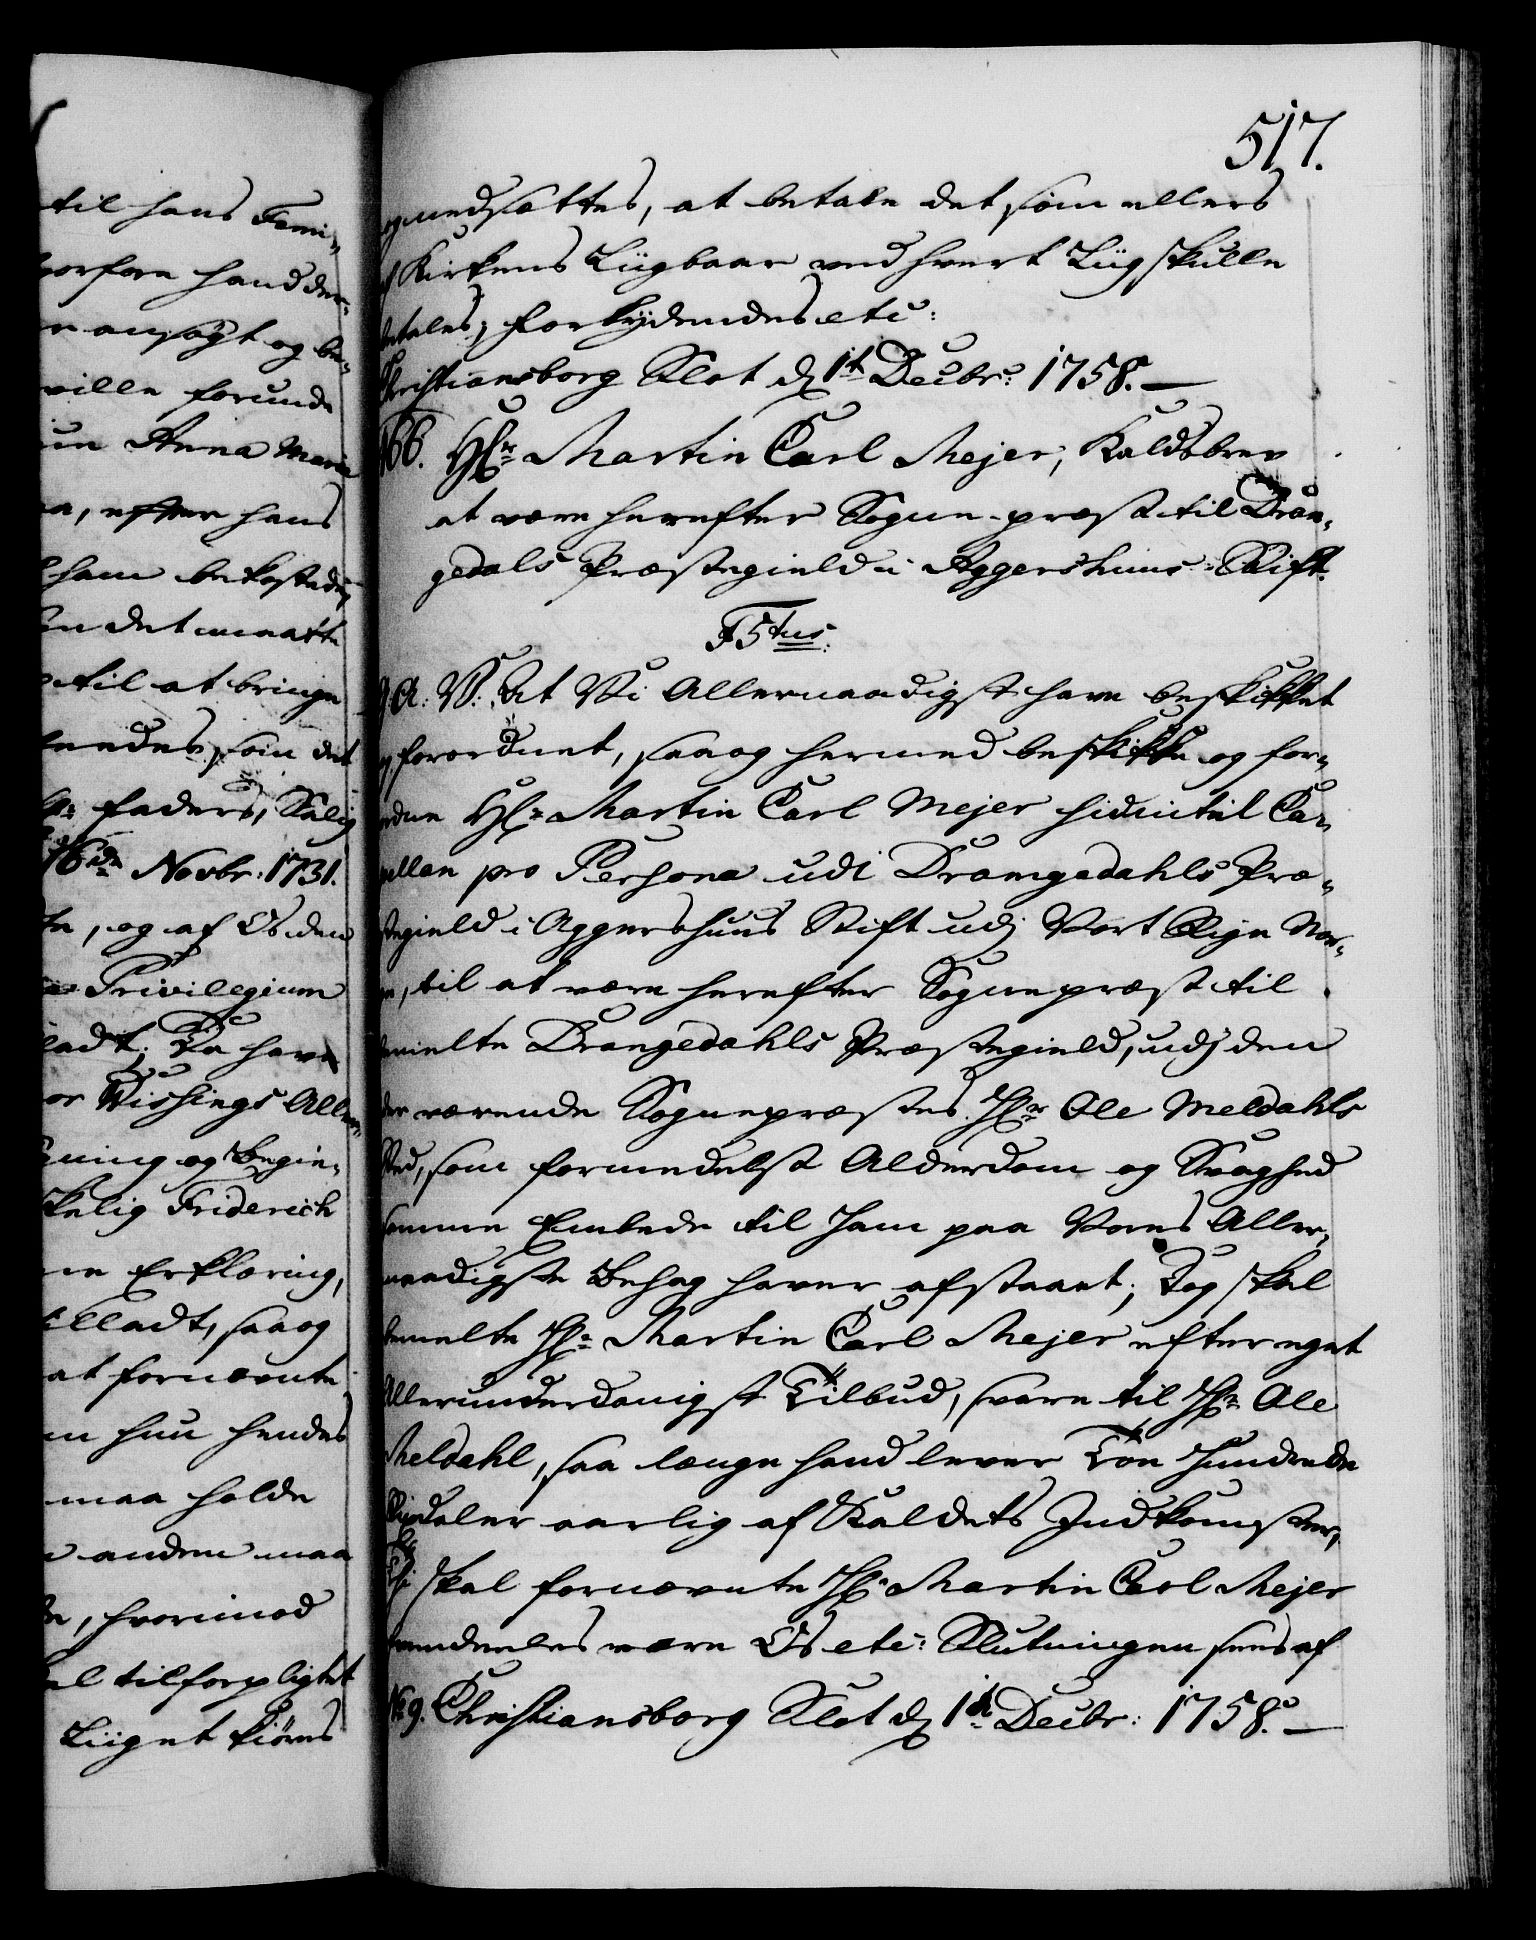 til hans Femi-
hvorfore hand der-
ansøgt og be-
ville forunde
Anna Maria
efter hans
ham bekostede
det maatte
til at bringe
som det
faders, Salig
16de Novbr: 1731.
og af Os den
Privilegium
ladt; Da have
Wissings Aller-
og Begie-
Friderich
Erklæring,
saa og
at fornævnte
hun hendes
maa holde
anden maa
hvorimod
tilforpligtet
Liiget kiøres
517.
og nedsættes, at betale det som ellers
Kirkens Liigbaar ved hvert Liig skulle
betales, forbydendes etc:
Christiansborg Slot d 1t Decbr: 1758. —
166. Hr Martin Carl Mejer, Kaldsbrev
at være herefter Sogne-præst til Dran-
gedals Præstegield i Aggershuus-Stift.
F5tus.
G. A. V. At Vi Allernaadigst have beskikket
og forordnet, saa og hermed beskikke og for-
ordne Hr Martin Carl Mejer hidintil Ca-
pellan pro Persona udi Drangedahls Præ-
stegield i Aggershuus Stift udj Vort Rige Nor-
ge, til at være herefter Sognepræst til
bemelte Drangedahls Præstegield, udj den
der værende Sognepræstes Hr Ole Meldahls
Sted, som formedelst Alderdom og Svaghed
samme Embede til ham paa Vores Aller-
naadigste Behag haver afstaaet; Dog skal
bemelte Hr Martin Carl Mejer efter eget
Allerunderdanigst Tilbud, svare til Hr Ole
Meldahl, saa længe hand lever Toe Hundrede
Rixdaler aarlig af Kaldets Indkomster,
Thi skal fornævnte Hr Martin Carl Mejer
fremdeeles være Os etc: Slutningen sees af
No 9. Christiansborg Slot d 1t Decbr: 1758. —